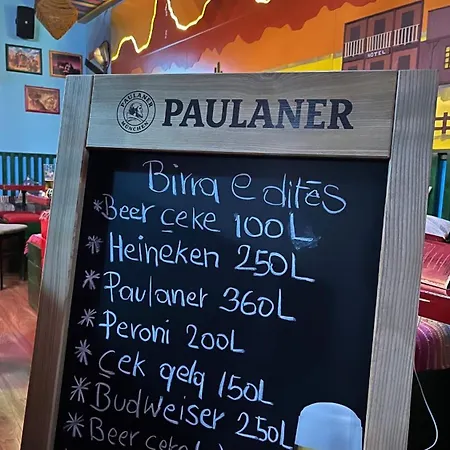 PAULANER
MÜNCHEN
PAULANER
HOTEL
Birra e ditës
*Beer çeke 100L
*Heineken 250L
*Paulaner 360L
*Peroni 200L
*Çek qelq 150L
*Budweiser 250L
*Beer çeke